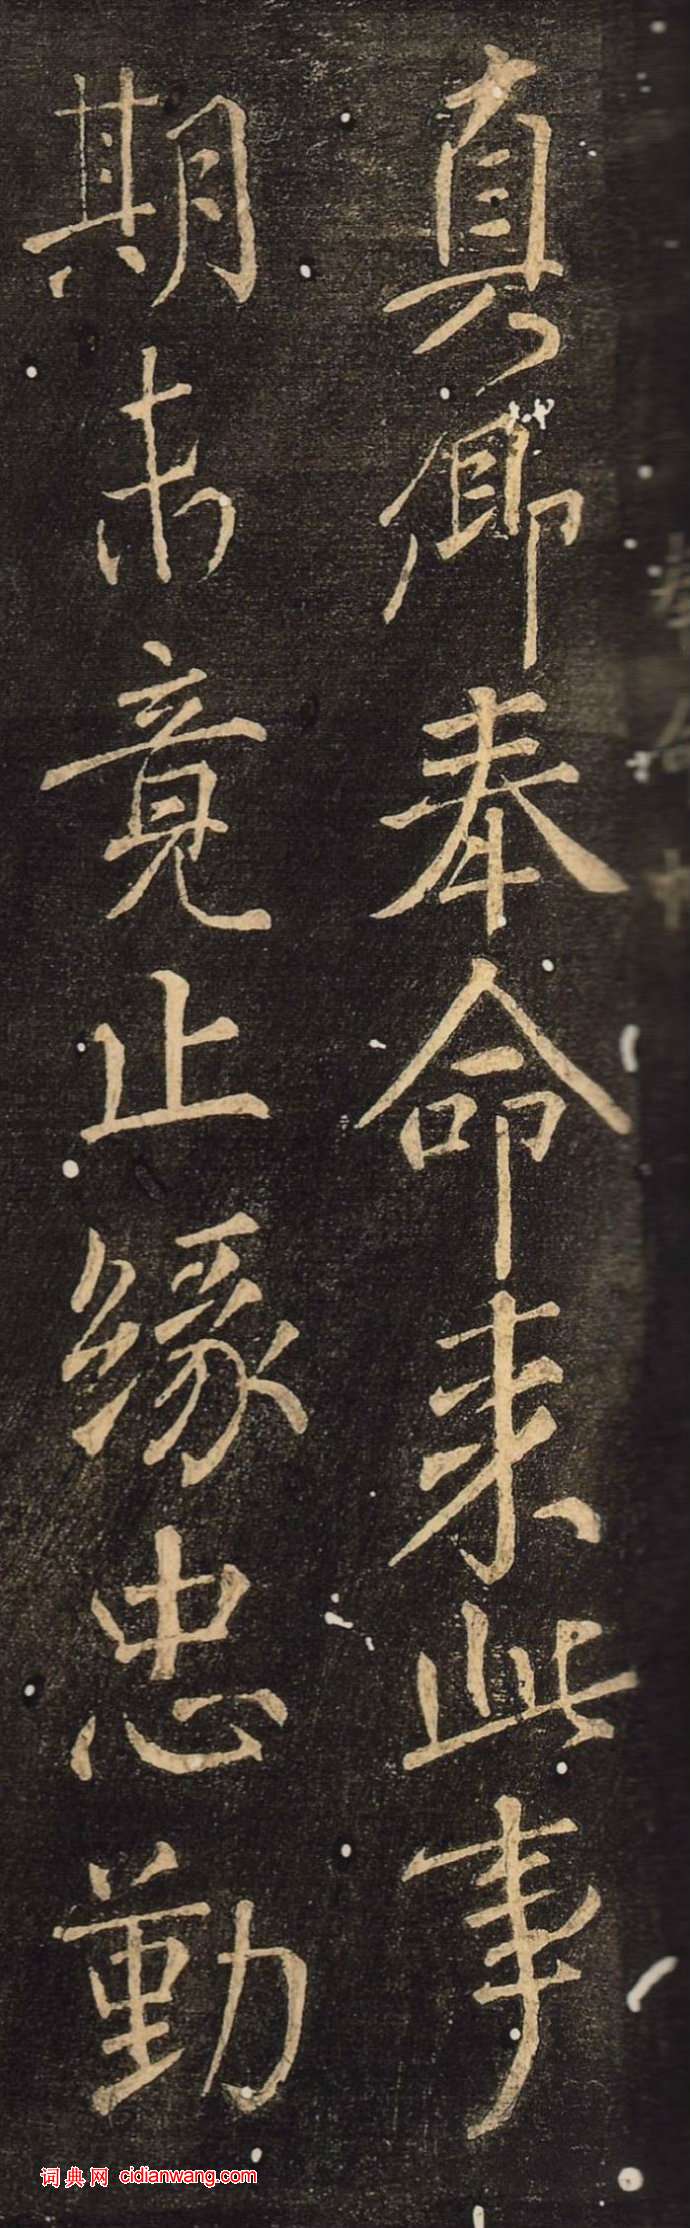 真卿奉命来此事
期未竟止缘忠勤
词典网 cidianwang.com